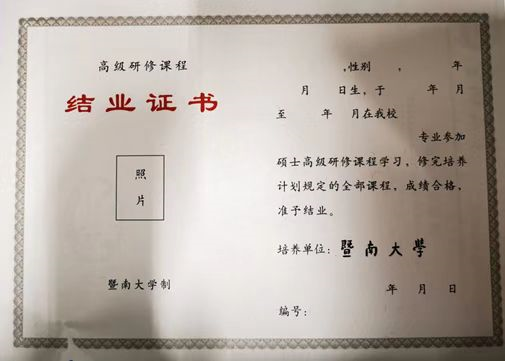 高级研修课程
结业证书
照
片
暨南大学制
,性别 , 年
月 日生,于 年 月
至 年 月在我校
专业参加
硕士高级研修课程学习，修完培养
计划规定的全部课程，成绩合格，
准予结业。
培养单位：暨南大學
年 月 日
编号：